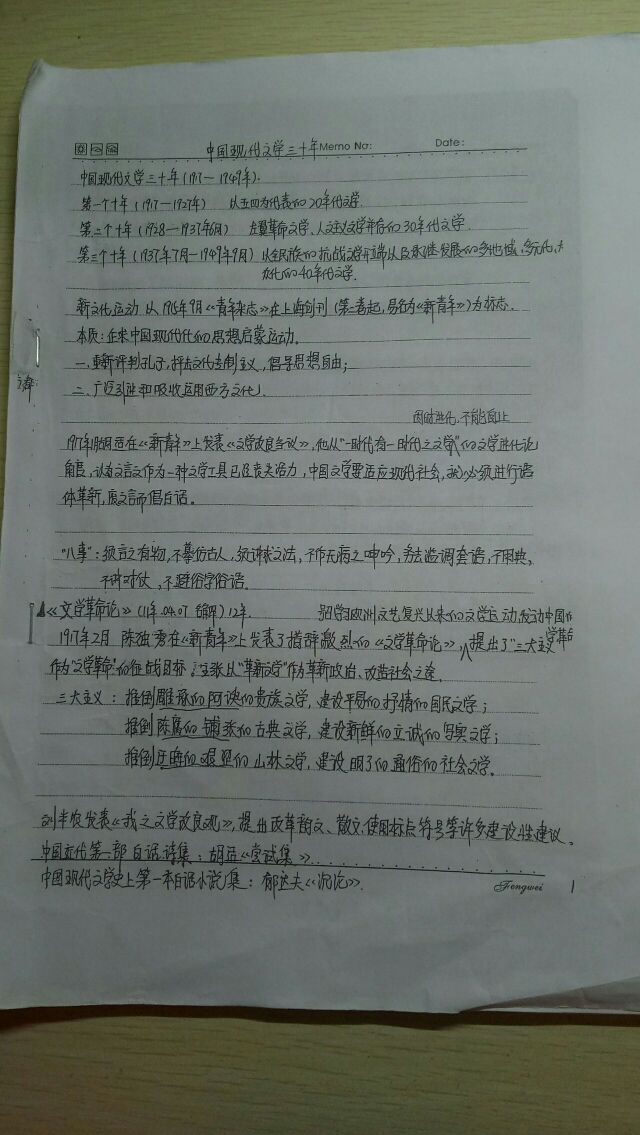 中国现代文学三十年 Memo No: Date:
中国现代文学三十年(1917—1949年):
第一个十年(1917—1927年) 以五四为代表的20年代文学.
第二个十年(1928—1937年6月) 左翼革命文学、人文主义文学并启的30年代文学.
第三个十年(1937年7月—1949年9月) 以全民族的抗战文学开端以及承继发展的多地域,多元化,
化的40年代文学.
新文化运动 从1915年9月《青年杂志》在上海创刊(第二卷起,易名为《新青年》)为标志.
本质:企求中国现代化的思想启蒙运动.
一、重新评判孔子,抨击文化专制主义,倡导思想自由;
二、广泛引进和吸收运用西方文化.
因时进化,不能自止
1917年胡适在《新青年》上发表《文学改良刍议》,他从"一时代有一时代之文学"的文学进化论
角度,认为文言文作为一种文学工具已经丧失活力,中国文学要适应现代社会,就必须进行语
体革新,废文言而倡白话。
"八事":须言之有物,不摹仿古人,须讲求文法,不作无病之呻吟,务去滥调套语,不用典,
不讲对仗,不避俗字俗语.
《文学革命论》(11年.04.07 12年. 欧洲文艺复兴以来的文学运动,发动中国的
文学革命
1917年2月 陈独秀在《新青年》上发表了措辞激烈的《文学革命论》,提出了"三大主义"
作为"文学革命"的征战目标;主张从"革新文学"作为革新政治、改造社会之途.
三大主义:推倒雕琢的阿谀的贵族文学,建设平易的抒情的国民文学;
推倒陈腐的铺张的古典文学,建设新鲜的立诚的写实文学;
推倒迂晦的艰涩的山林文学,建设明了的通俗的社会文学。
刘半农发表《我之文学改良观》,提出改革韵文、散文,使用标点符号等许多建设性建议。
中国近代第一部白话诗集:胡适《尝试集》.
中国现代文学史上第一本白话小说集:郁达夫《沉沦》.
Fengwei 1